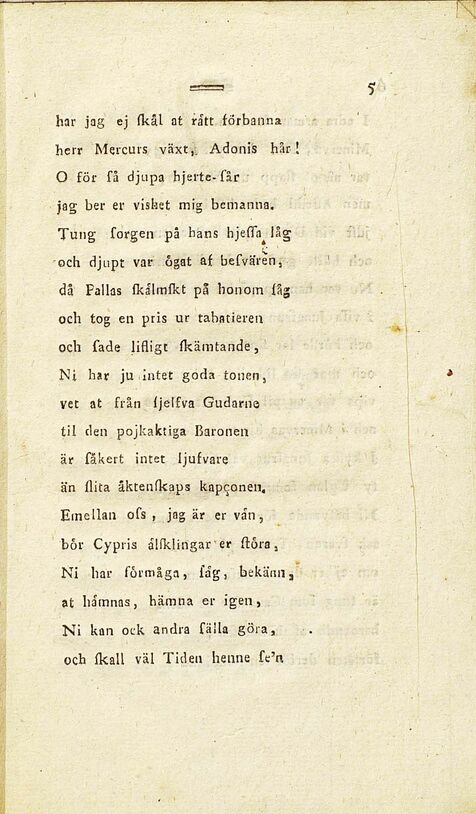 5
har jag ej ſkål at rått förbanna
herr Mercurs växt, Adonis hår!
O för ſå djupa hjerte-ſår
jag ber er vishet mig bemanna.
Tung ſorgen på hans hjeſſa låg
och djupt var ögat af beſvären,
då Pallas ſkålmſkt på honom ſåg
och tog en pris ur tabatieren
och ſade liſligt ſkämtande,
Ni har ju intet goda tonen,
vet at från ſjelfva Gudarne
til den pojkaktiga Baronen
är ſåkert intet ljufvare
än ſlita åktenſkaps kapçonen.
Emellan oſs, jag är er vån,
bör Cypris ålſklingar er ſtöra,
Ni har förmåga, ſåg, bekänn,
at håmnas, hämna er igen,
Ni kan ock andra ſälla göra,
och ſkall väl Tiden henne ſe'n